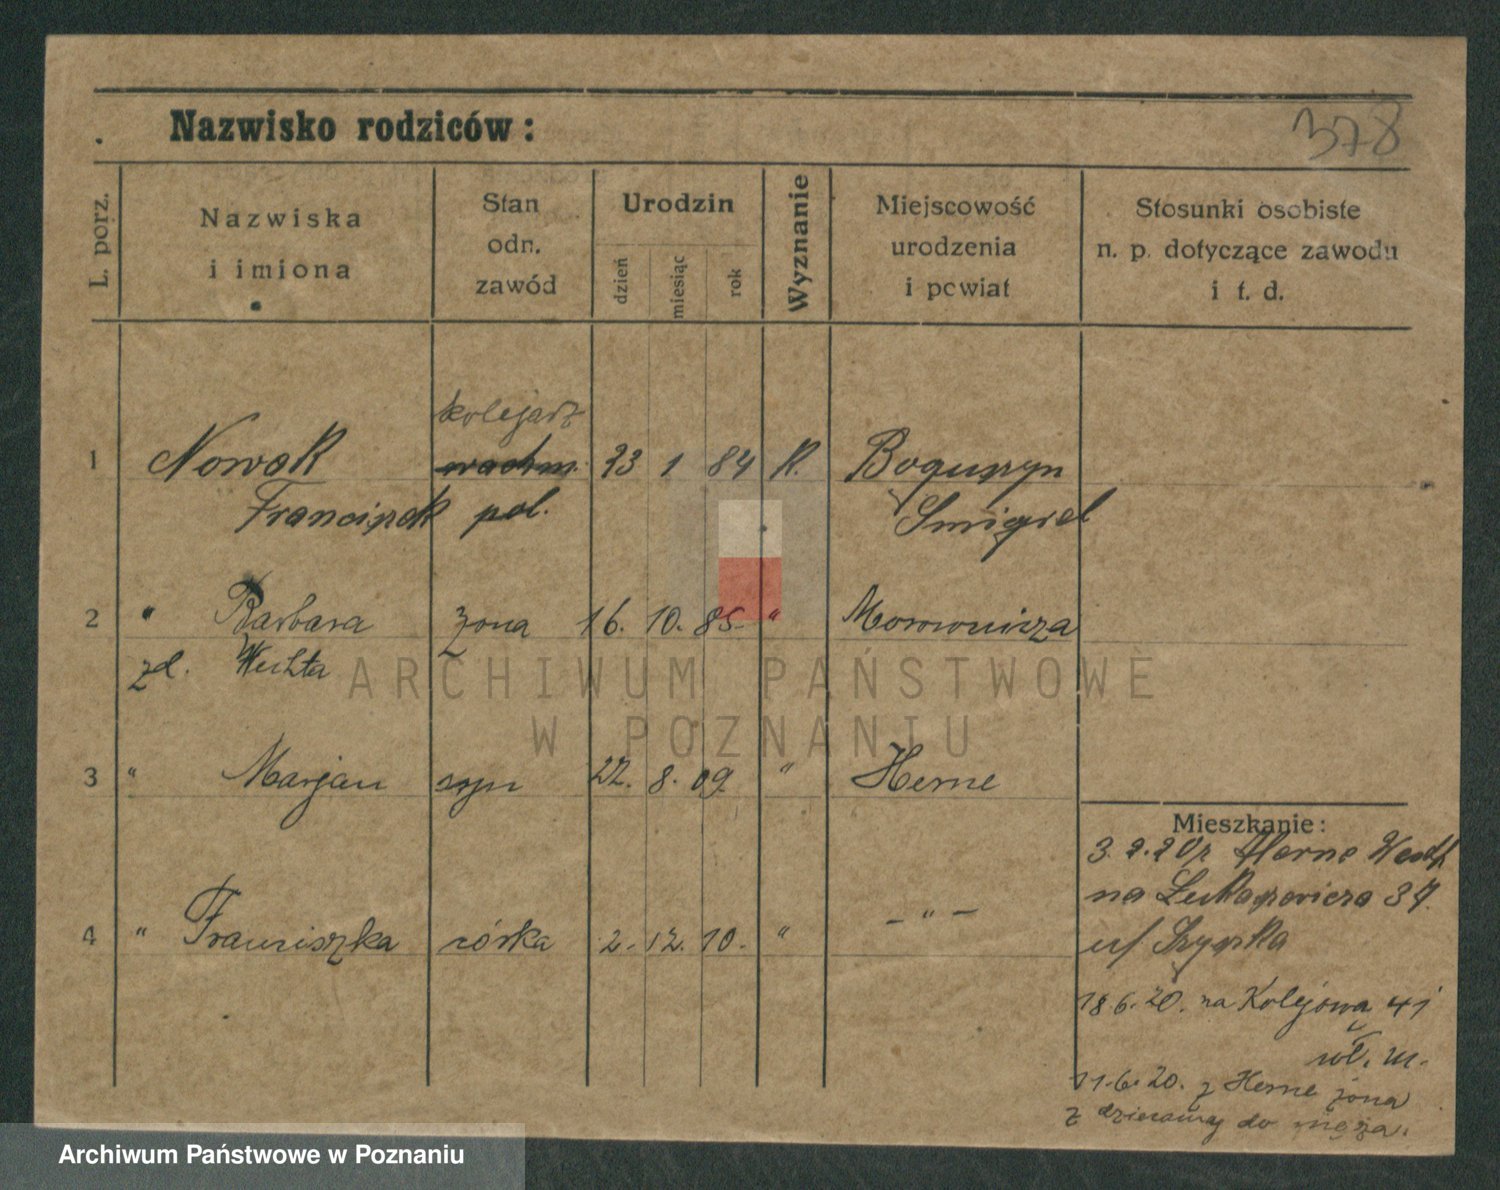 378
Nazwisko rodziców:
L. porz.
Nazwiska
i imiona
Stan
odn.
zawód
Urodzin
dzień
miesiąc
rok
Wyznanie
Miejscowość
urodzenia
i powiat
Stosunki osobiste
n. p. dotyczące zawodu
i t. d.
kolejarz
1 Nowak 23 1 84 K. Boguszyn
Franciszek pol. Śmigiel
2 " Barbara żona 16. 10. 85. "
zd. Wechta
3 " Marjan syn 22. 8. 09. " Herne
4 " Franciszka córka 2. 12. 10. " - " -
Mieszkanie:
3.2.20 z Herne Westf
na 37.
u/ Szyszka
18.6.20. na Kolejową 41
wł. m.
11.6.20. z Herne żona
z dziećmi do męża.
ARCHIWUM PAŃSTWOWE
W POZNANIU
Archiwum Państwowe w Poznaniu